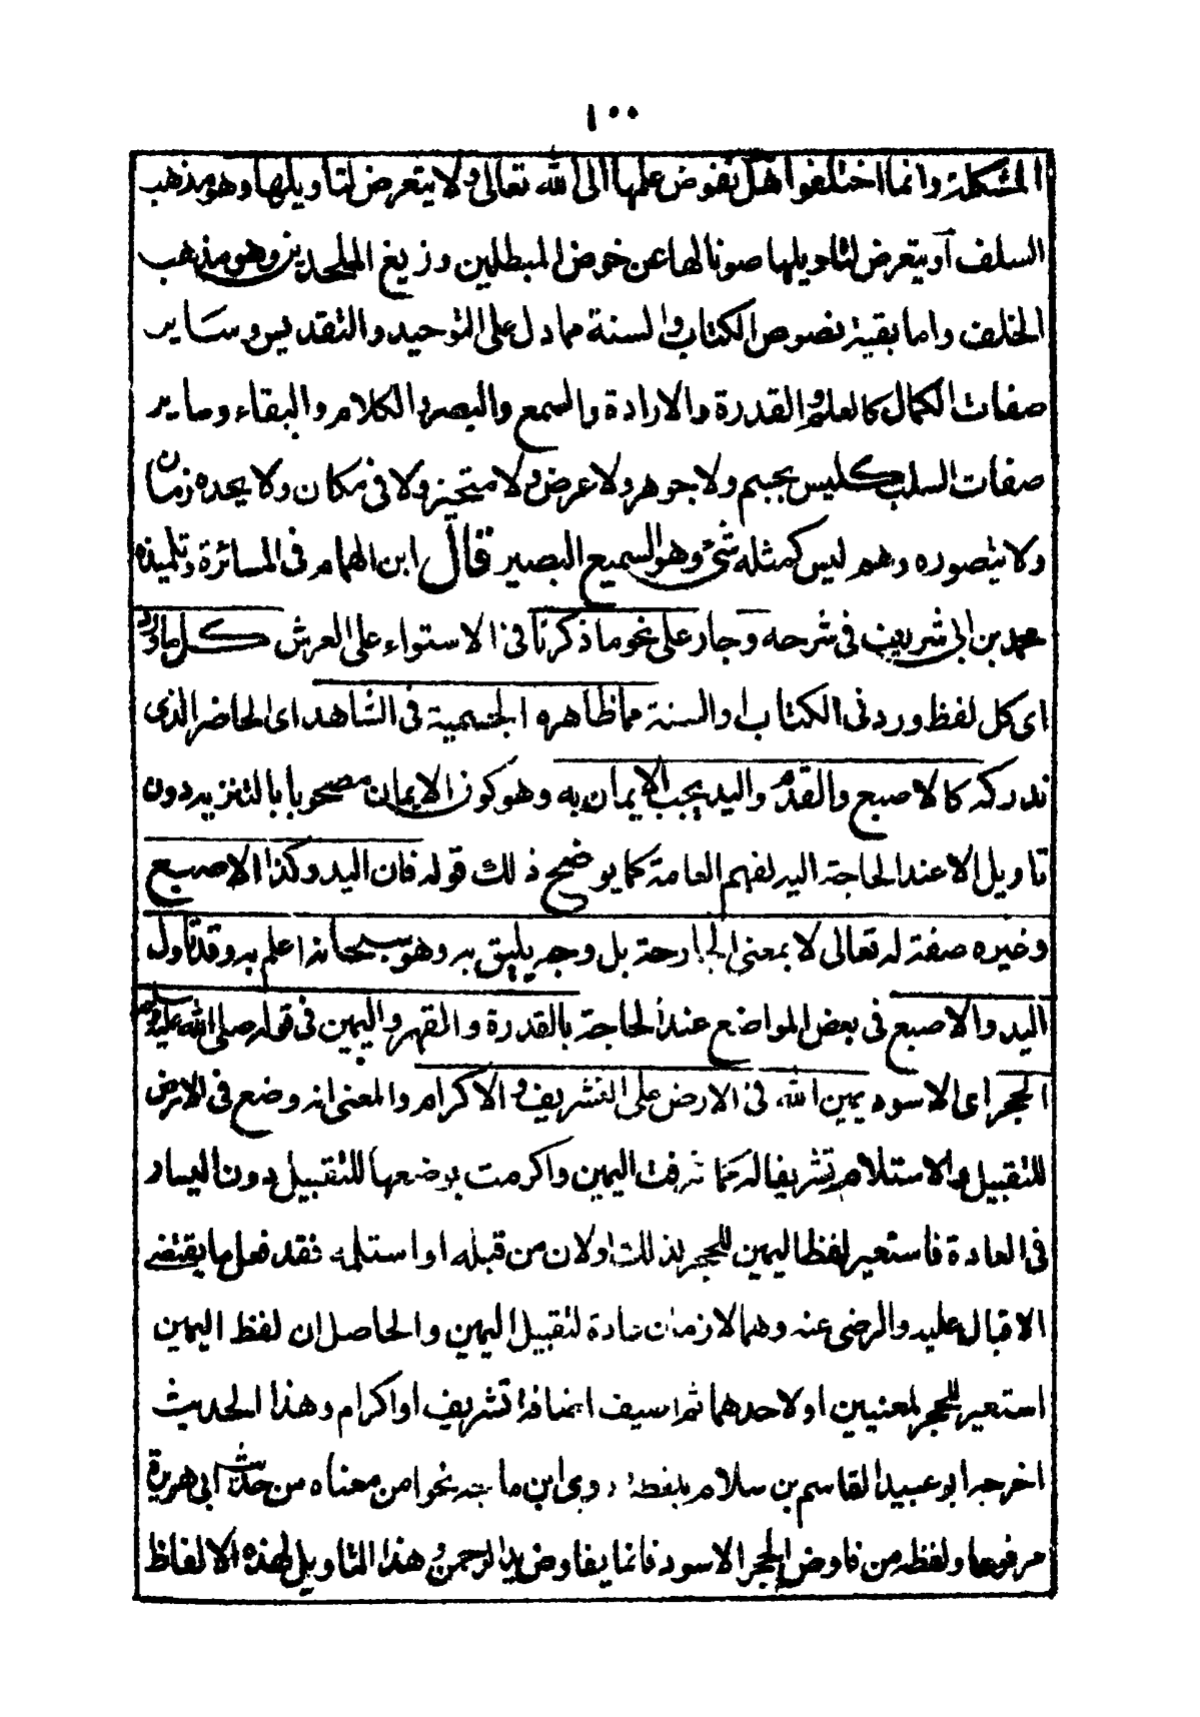 ١٠٠
المشكلة وانما اختلفوا هل نفوض علمها الى الله تعالى ولا يتعرض لتاويلها وهو مذهب
السلف او يتعرض لتاويلها صونا لها عن خوض المبطلين وزيغ الملحدين وهو مذهب
الخلف واما بقية نصوص الكتاب والسنة مما دل على التوحيد والتقديس وساير
صفات الكمال كالعلم والقدرة والارادة والسمع والبصر والكلام والبقاء وساير
صفات السلب كليس بجسم ولا جوهر ولا عرض ولا متحيز ولا في مكان ولا يحده زمان
ولا يتصوره وهم ليس كمثله شئ وهو السميع البصير قال ابن الهمام في المسائرة وتلميذه
محمد بن ابي شريف في شرحه وجار على نحو ما ذكرنا في الاستواء على العرش كل ما ورد
اى كل لفظ ورد في الكتاب والسنة مما ظاهره الجسمية في الشاهد اى الحاضر الذى
ندركه كالاصبع والقدم واليد يجب الايمان به وهو كون الايمان مصحوبا بالتنزيه دون
تاويل الا عند الحاجة اليه لفهم العامة كما يوضح ذلك قوله فان اليد وكذا الاصبع
وغيره صفة له تعالى لا بمعنى الجارحة بل وجه يليق به وهو سبحانه اعلم به وقد تاول
اليد والاصبع في بعض المواضع عند الحاجة بالقدرة والقهر واليمين في قوله صلى الله عليه وسلم
الحجر اى الاسود يمين الله في الارض على التشريف والاكرام والمعنى انه وضع في الارض
للتقبيل والاستلام تشريفا له كما شرفت اليمين واكرمت بوضعها للتقبيل دون اليسار
في العادة فاستعير لفظ اليمين للحجر لذلك او لان من قبله او استلمه فقد فعل ما يقتضى
الاقبال عليه والرضى عنه وهما لازمان عادة لتقبيل اليمين والحاصل ان لفظ اليمين
استعير للحجر لمعنيين او لاحدهما ثم اضيف اضافة تشريف او اكرام وهذا الحديث
اخرجه ابو عبيد القاسم بن سلام بلفظه وروى ابن ماجه نحوا من معناه من حديث ابى هريرة
مرفوعا ولفظه من فاوض الحجر الاسود فانما يفاوض يد الرحمن وهذا التاويل لهذه الالفاظ